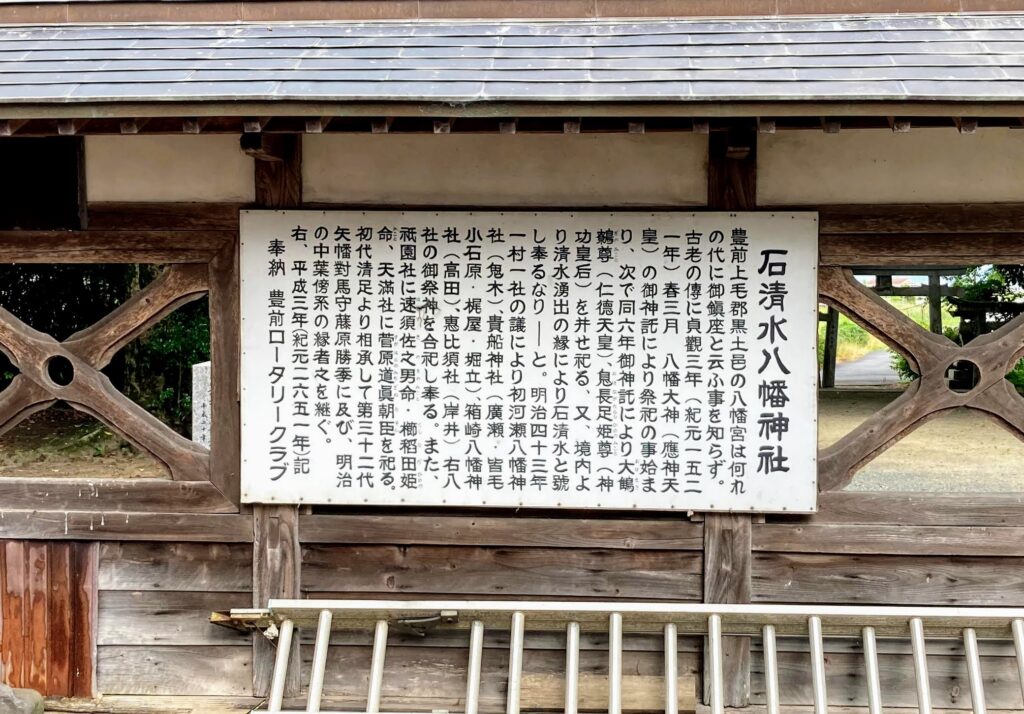 石清水八幡神社
豊前上毛郡黒土邑の八幡宮は何れ
の代に御鎮座と云ふ事を知らず。
古老の傳に貞觀三年(紀元一五二
一年)春三月 八幡大神(應神天
皇)の御神託により祭祀の事始ま
り、次で同六年御神託により大鷦
鷯尊(仁德天皇)、息長足姫尊(神
功皇后)を并せ祀る、又、境内よ
り清水湧出の縁により石清水と號
し奉るなり――と。明治四十三年
一村一社の議により初河瀬八幡神
社(鬼木)、貴船神社(廣瀬・皆毛
小石原・梶屋・堀立)、箱崎八幡神
社(高田)、恵比須社(岸井)右八
社の御祭神を合祀し奉る。また、
祇園社に速須佐之男命・櫛稲田姫
命、天満社に菅原道眞朝臣を祀る。
初代清足より相承して第三十二代
矢幡對馬守藤原勝季に及び、明治
の中葉傍系の縁者之を継ぐ。
右、平成三年(紀元二六五一年)記
奉納 豊前ロータリークラブ